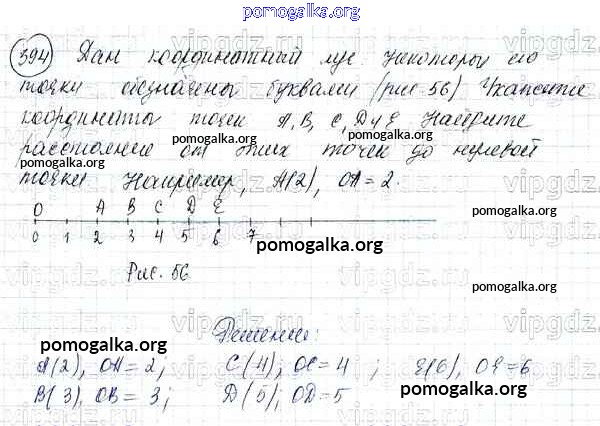 pomogalka.org
394 Дан координатный луч. Некоторы его
точки обозначены буквами (рис 56) Укажите
координаты точек A, B, C, D и E Найдите
pomogalka.org
расстояние от этих точек до нулевой
pomogalka.org
точки Например, A(2), OA = 2.
O A B C D E
0 1 2 3 4 5 6 7
pomogalka.org
Рис. 56
Решение:
pomogalka.org
A(2), OA = 2; C(4); OC = 4 ; E(6), OE = 6
B(3), OB = 3; D(5); OD = 5
pomogalka.org